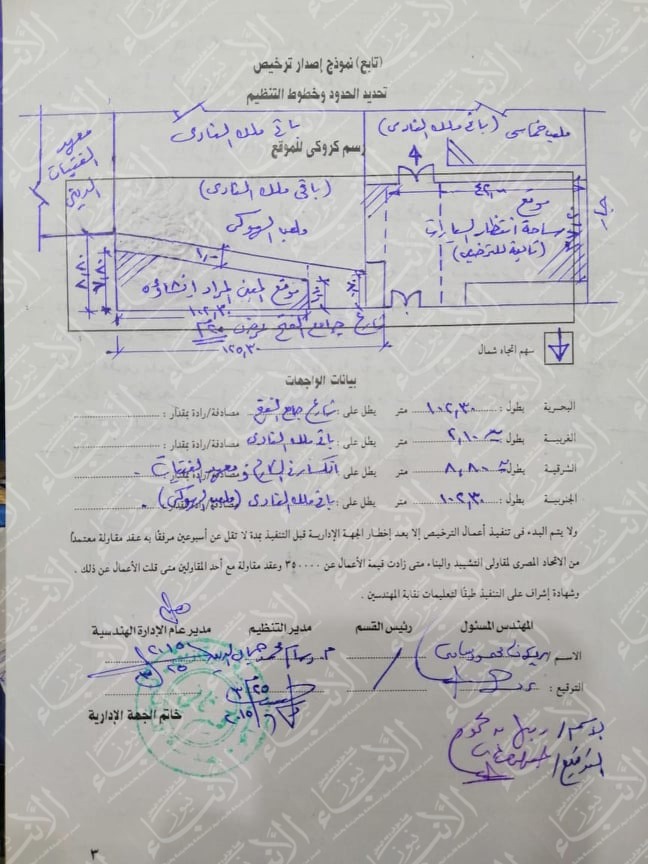 (تابع) نموذج إصدار ترخيص
تحديد الحدود وخطوط التنظيم
رسم كروكى للموقع
معهد الفتيات الدينى
باقى ملك النادى
ملعب خماسى (باقى ملك النادى)
(باقى ملك النادى)
ملعب الهوكى
موقع
ساحة انتظار السيارات
(تالية للترخيص)
٤٢,٠٠
جار
١,٠٠
٨,٨٠
٧,٨٠
موقع المبنى المراد إنشاؤه
١٠٢,٣٠
شارع جامع الفتح عرض
١٢٥,٣٠
سهم اتجاه شمال
بيانات الواجهات
البحرية بطول : ١٠٢,٣٠ متر يطل على : شارع جامع الفتح مصادفة/رادة بمقدار :
الغربية بطول : ٢,١٠ متر يطل على : باقى ملك النادى مصادفة/رادة بمقدار :
الشرقية بطول : ٨,٨٠ متر يطل على : انكسار فى الشارع ومعهد الفتيات مصادفة/رادة بمقدار :
الجنوبية بطول : ١٠٢,٣٠ متر يطل على : باقى ملك النادى (ملعب الهوكى) مصادفة/رادة بمقدار :
ولا يتم البدء فى تنفيذ أعمال الترخيص إلا بعد إخطار الجهة الإدارية قبل التنفيذ بمدة لا تقل عن أسبوعين مرفقًا به عقد مقاولة معتمدًا
من الاتحاد المصرى لمقاولى التشييد والبناء متى زادت قيمة الأعمال عن ٣٥٠٠٠٠ وعقد مقاولة مع أحد المقاولين متى قلت الأعمال عن ذلك .
وشهادة إشراف على التنفيذ طبقًا لتعليمات نقابة المهندسين .
المهندس المسئول رئيس القسم مدير التنظيم مدير عام الإدارة الهندسية
الاسم :
التوقيع :
خاتم الجهة الإدارية
الاسم /
التوقيع /
٣